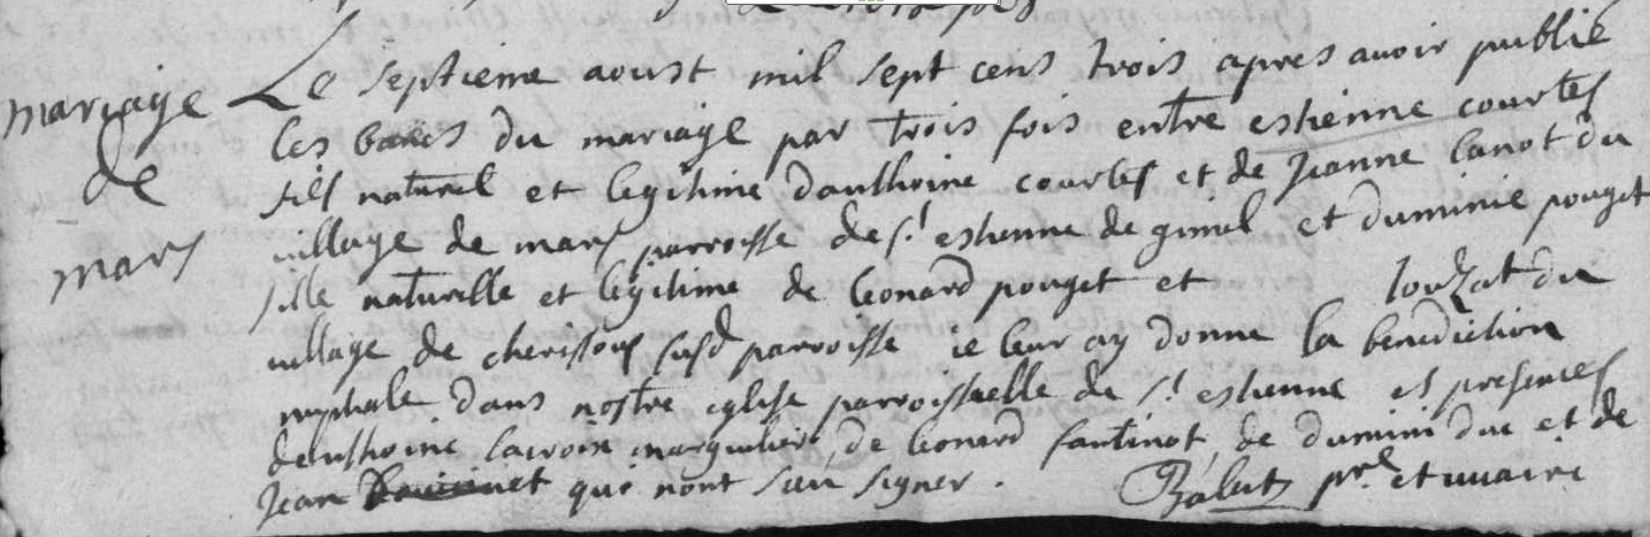 mariage
de
mars
Le septieme aoust mil sept cens trois apres avoir publié
les bancs du mariage par trois fois entre estienne courtes
fils naturel et legitime danthoine courtes et de Jeanne lanot du
village de mars parroisse de st estienne de gimel et duminie pouget
fille naturelle et legitime de leonard pouget et louzat du
village de cherissous susd parroisse ie leur ay donne la benediction
nuptiale dans nostre eglise parroissielle de st estienne es presences
danthoine lacroix marguilier, de leonard fantinot, de dumini duc et de
Jean qui nont sceu signer. Balut pre et vicaire